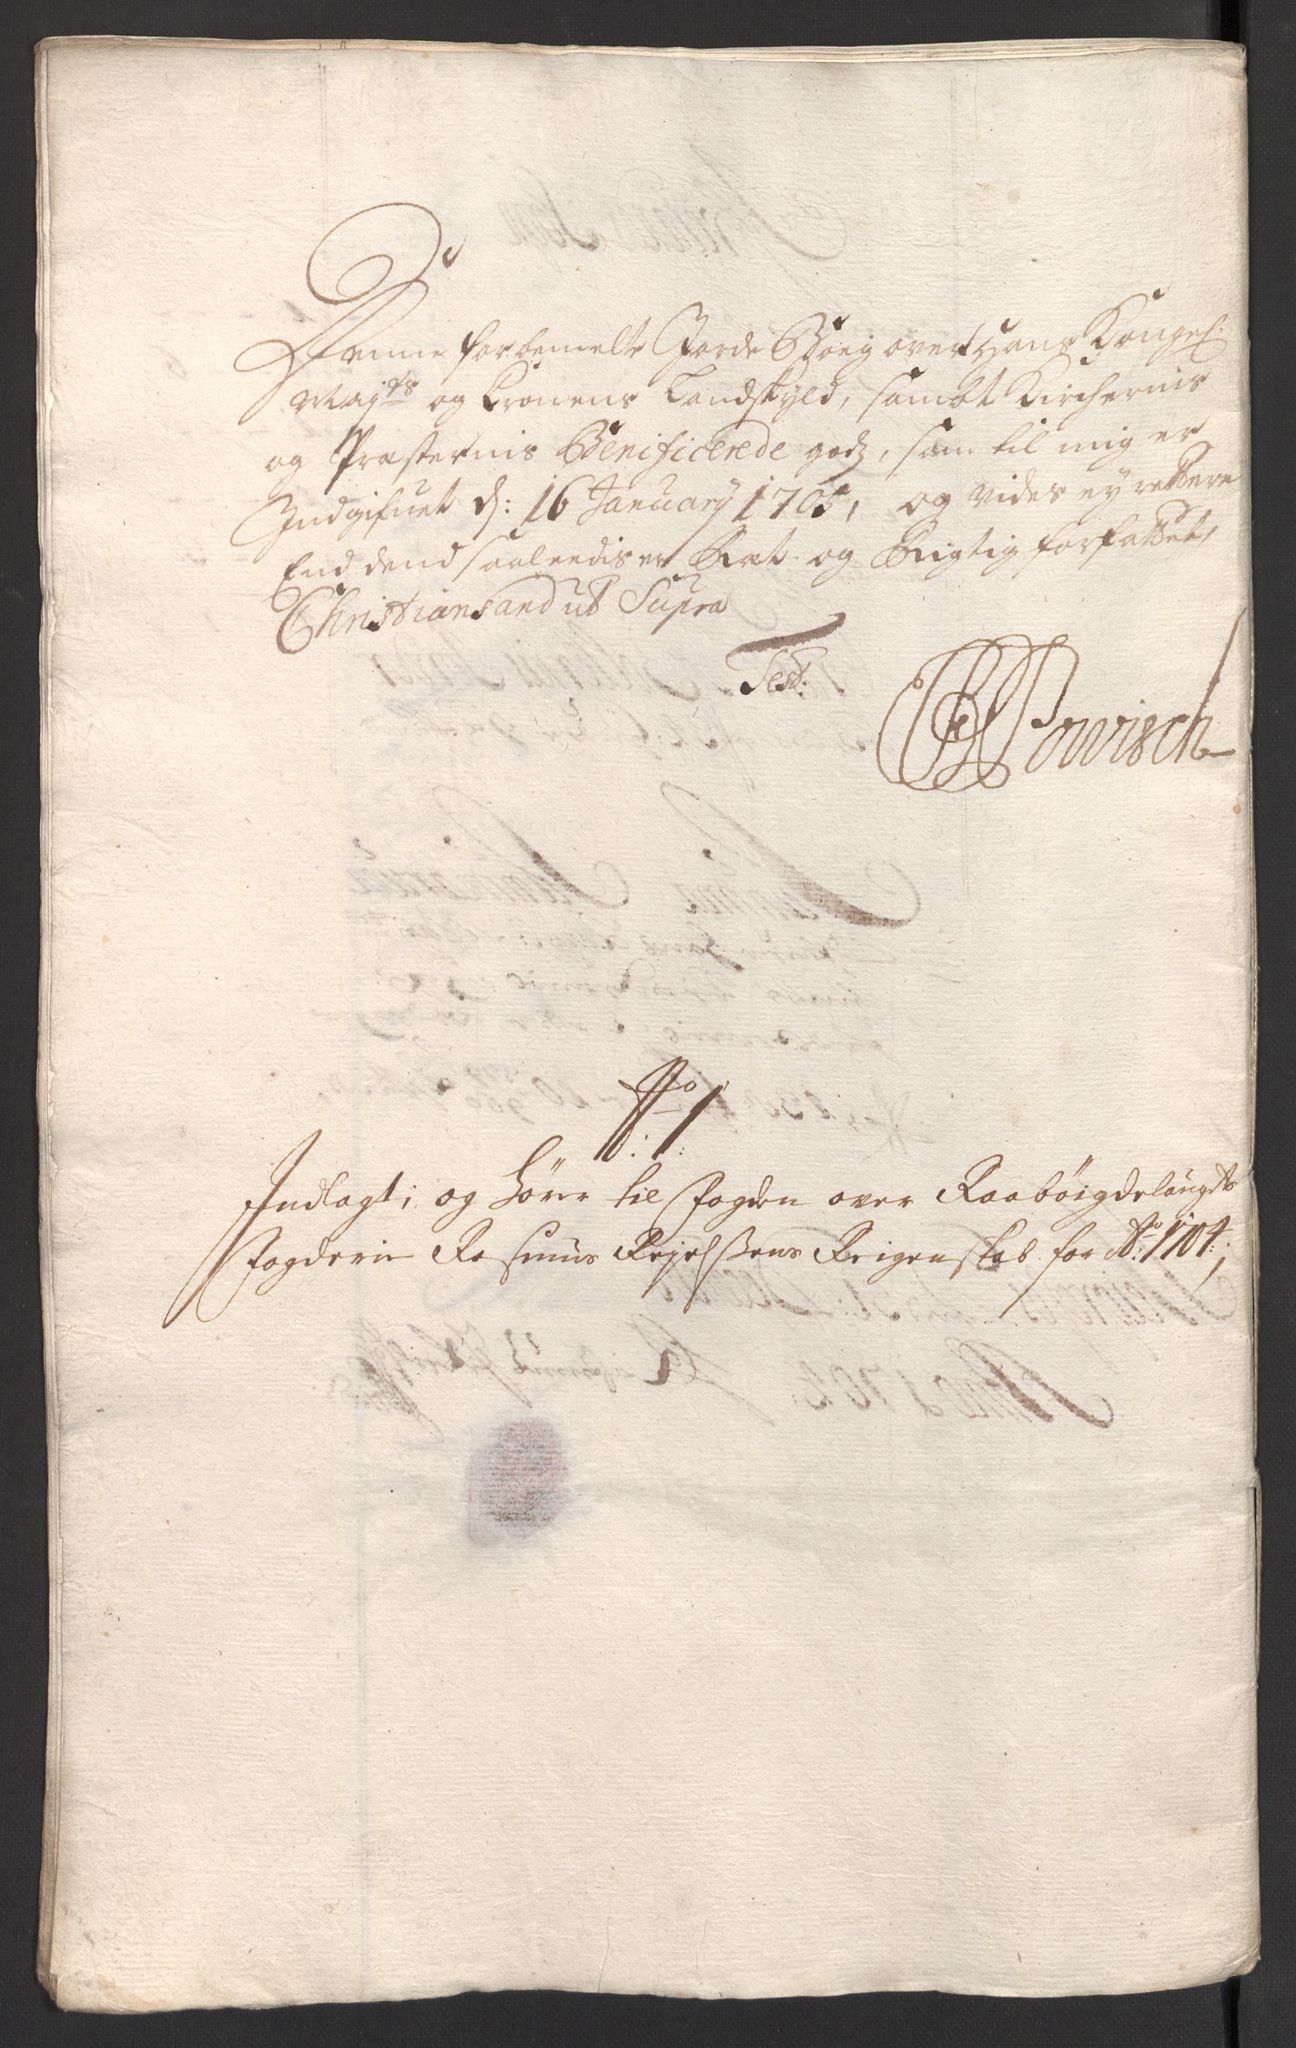 Denne forbemelte Jorde Boeg over Hans Kongel:
Maj:ts og Cronens Landskyld, sambt Kirchernis
og Præsternis Benificerede godz, som til mig er
Indgifuet d: 16 January 1705, og vides ey rettere
End dend saaleedis er Ret og Rigtig forfattet,
Christiansand ut Supra
Test:
Powisch
No: 1:
Indlagt; og hører til fogden over Raabøigdelaugds
fogderie Rasmus Rejelssens Reigenskab for Ao: 1704:,